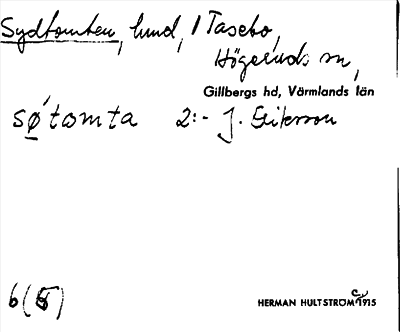 Sydtomten, lund, 1 Tasebo,
Högeruds sn,
Gillbergs hd, Värmlands län
sø´tomta 2:- J. Eriksson
6 (5)
HERMAN HULTSTRÖM C 1915